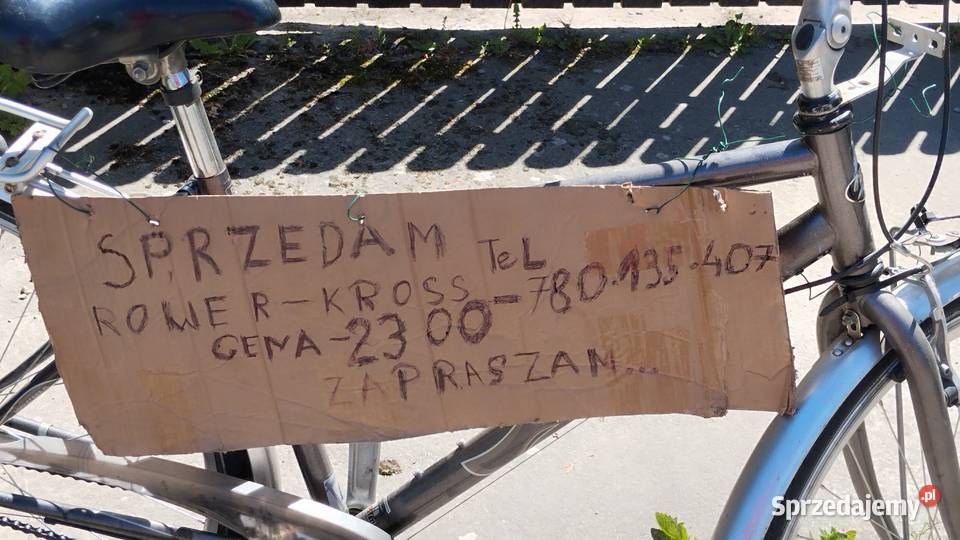 SPRZEDAM TeL
ROWER-KROSS-780.135.407
CENA-2300
ZAPRASZAM...
Sprzedajemy.pl